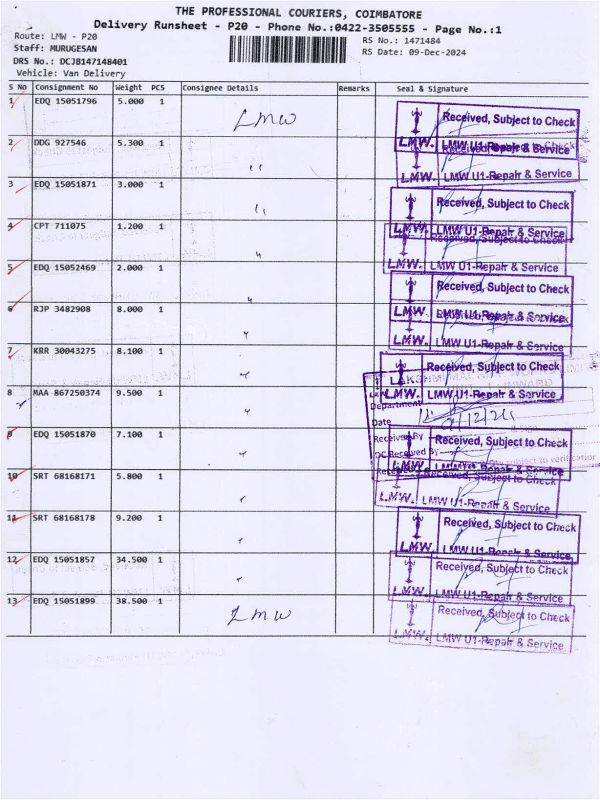 THE PROFESSIONAL COURIERS, COIMBATORE
Delivery Runsheet - P20 - Phone No.:0422-3505555 - Page No.:1
Route: LMW - P20
RS No.: 1471484
Staff: MURUGESAN
RS Date: 09-Dec-2024
DRS No.: DCJB147148401
Vehicle: Van Delivery
S No Consignment No Weight PCS Consignee Details Remarks Seal & Signature
1 EDQ 15051796 5.000 1 LMW
Received, Subject to Check
LMW. LMW U1-Repair & Service
2 DDG 927546 5.300 1 "
Received, Subject to Check
LMW. LMW U1-Repair & Service
3 EDQ 15051871 3.000 1 "
Received, Subject to Check
LMW. LMW U1-Repair & Service
4 CPT 711075 1.200 1 "
Received, Subject to Check
LMW. LMW U1-Repair & Service
5 EDQ 15052469 2.000 1 "
Received, Subject to Check
LMW. LMW U1-Repair & Service
6 RJP 3482908 8.000 1 "
LMW. LMW U1-Repair & Service
7 KRR 30043275 8.100 1 "
Received, Subject to Check
LMW. LMW U1-Repair & Service
8 MAA 867250374 9.500 1 "
INWARD
Department
Date
Received By
DC Received By
subject to verification
9 EDQ 15051870 7.100 1 "
Received, Subject to Check
LMW.
10 SRT 68168171 5.800 1 "
Received, Subject to Check
LMW. LMW U1-Repair & Service
11 SRT 68168178 9.200 1 "
Received, Subject to Check
LMW. LMW U1-Repair & Service
12 EDQ 15051857 34.500 1 "
Received, Subject to Check
LMW. LMW U1-Repair & Service
13 EDQ 15051899 38.500 1 LMW
Received, Subject to Check
LMW. LMW U1-Repair & Service